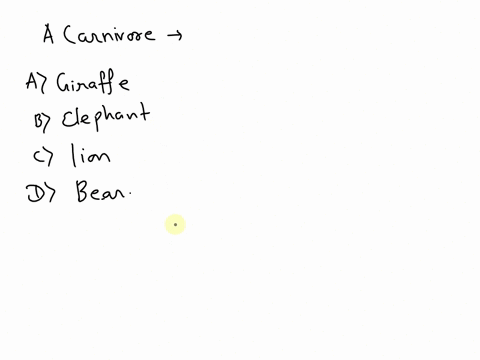 A Carnivore →
A> Giraffe
B> Elephant
C> lion
D> Bear.